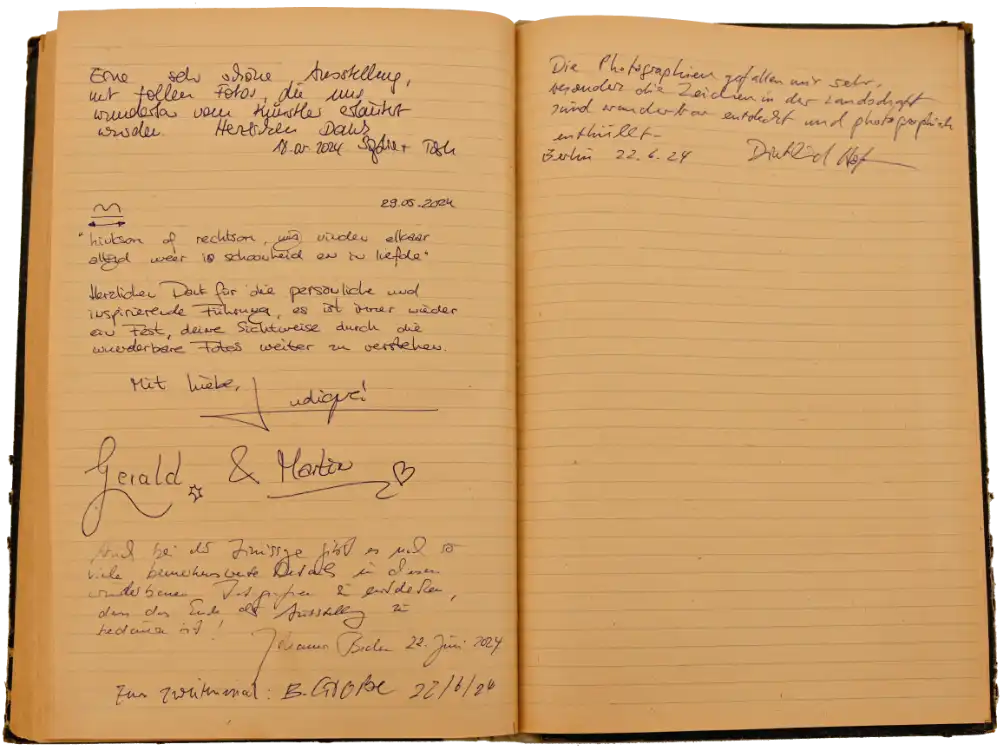 Eine sehr schöne Ausstellung,
mit tollen Fotos, die uns
wunderbar vom Künstler erläutert
wurden. Herzlichen Dank
2024
29.05.2024
"linksom of rechtsom, wij vinden elkaar
altijd weer in schoonheid en in liefde"
Herzlichen Dank für die persönliche und
inspirierende Führung, es ist immer wieder
ein Fest, deine Sichtweise durch die
wunderbare Fotos weiter zu verstehen.
Mit Liebe,
Gerald & Martin
Auch bei der Finissage gibt es noch so
viele bemerkenswerte Details in diesen
wunderbaren Fotografien zu entdecken,
dass das Ende der Ausstellung zu
bedauern ist!
22. Juni 2024
Zum zweitenmal: B. Grosse 22/6/24
Die Photographien gefallen mir sehr,
besonders die Zeichen in der Landschaft
sind wunderbar entdeckt und photographisch
enthüllt-
Berlin 22.6.24